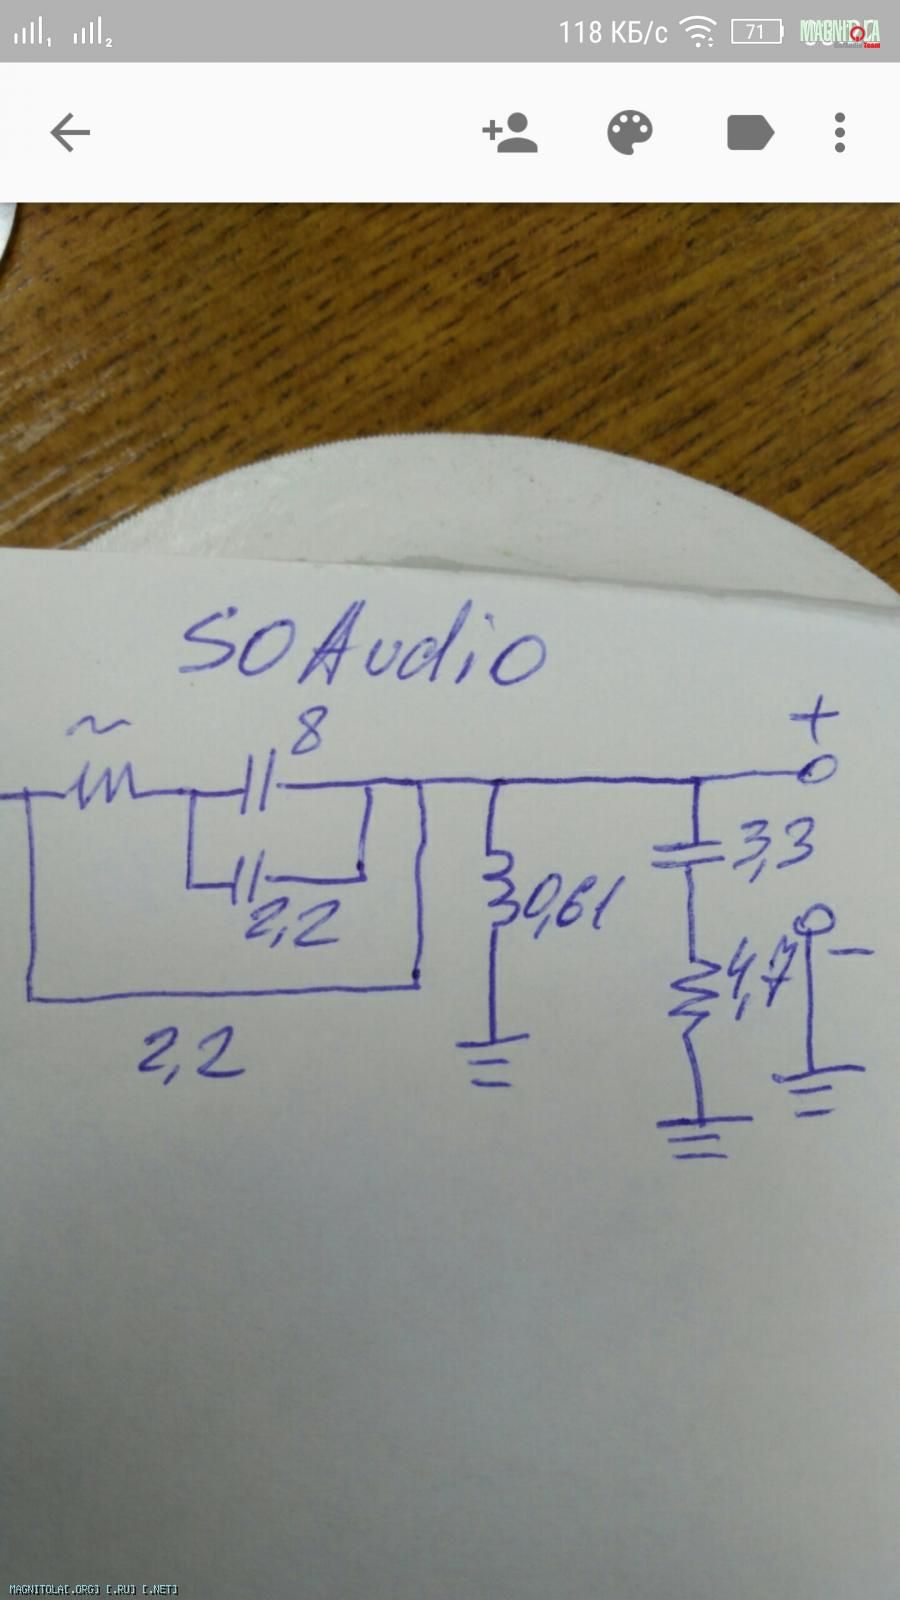 1 2 118 КБ/с 71
MAGNITOLA
Team
SOAudio
~ 8 +
3,3
2,2 0,61
4,7 −
2,2
MAGNITOLA[.ORG] [.RU] [.NET]